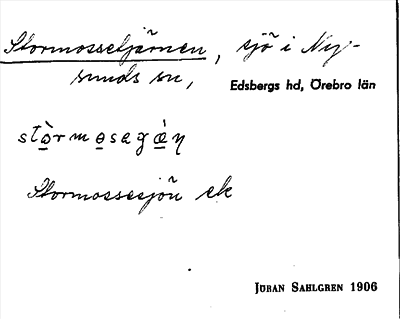 Stormossetjärnen, sjö i Ny-
sunds sn,
Edsbergs hd, Örebro län
Stormossesjön ek
JÖRAN SAHLGREN 1906